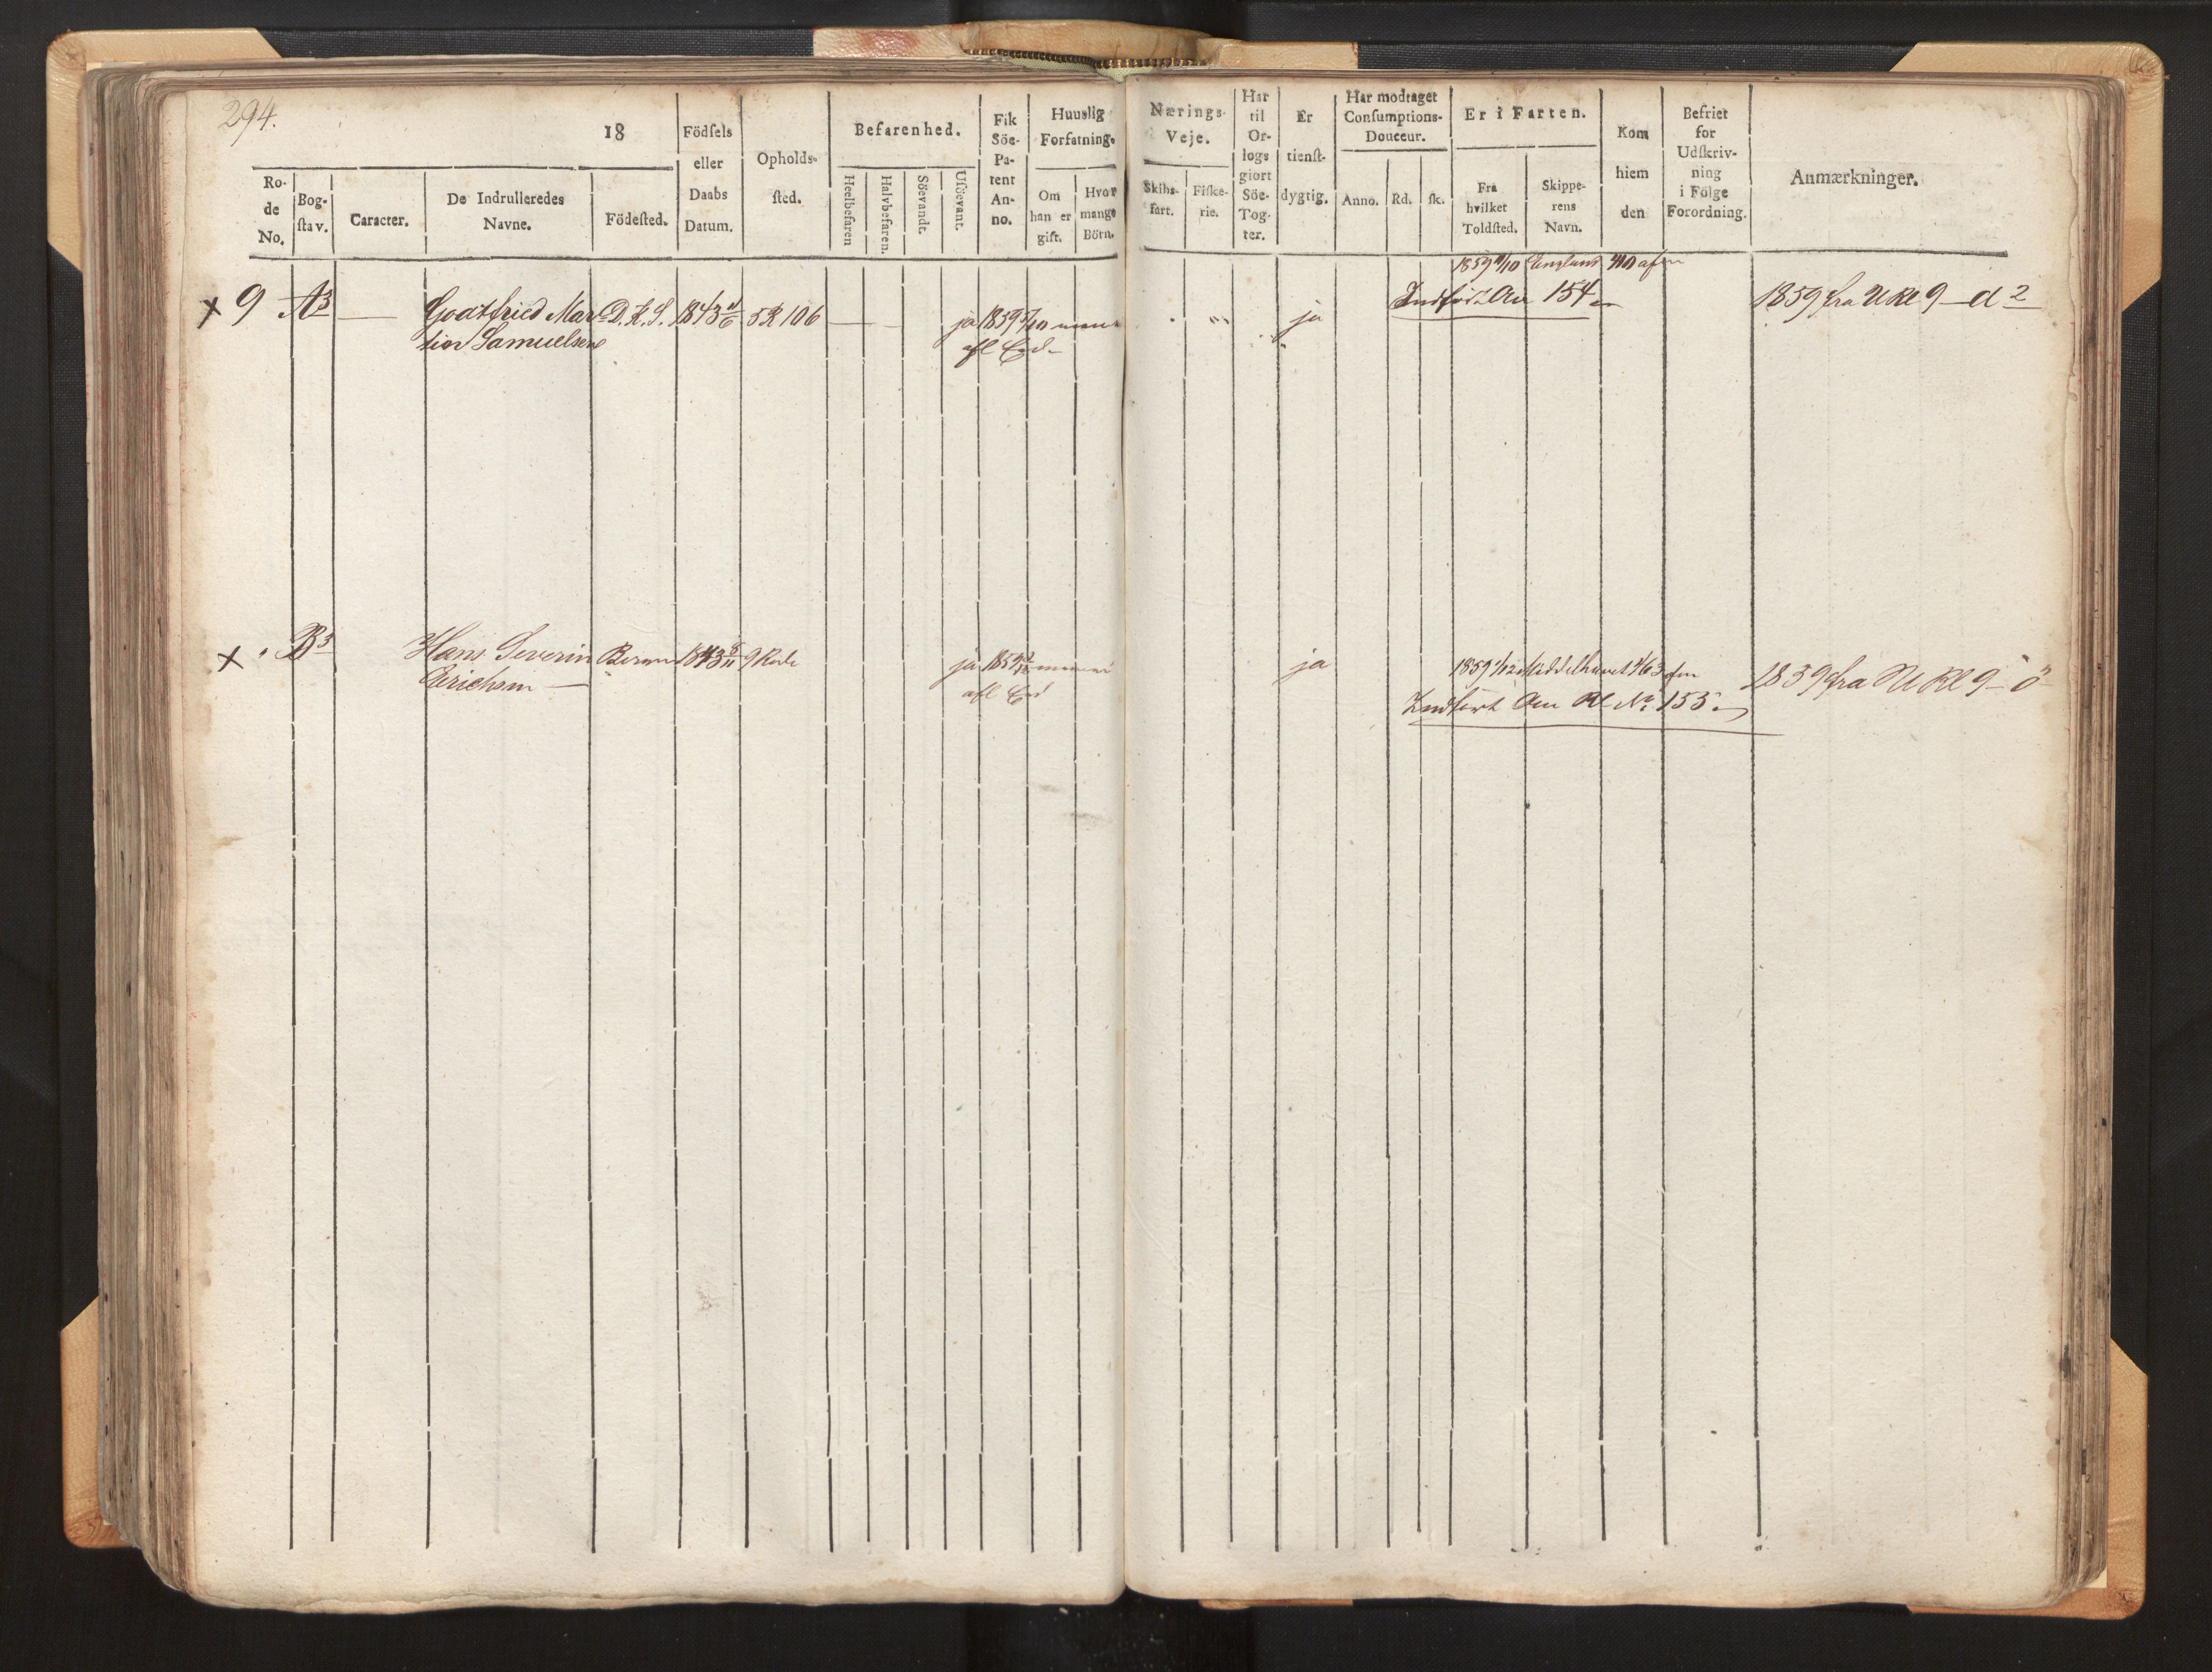 294.
18
Ro-
de
No.
Bog-
stav.
Caracter.
De Indrulleredes
Navne.
Födested.
Födsels
eller
Daabs
Datum.
Opholds-
sted.
Befarenhed.
Heelbefaren
Halvbefaren.
Söevandt.
Usöevant.
Fik
Söe-
Pa-
tent
An-
no.
Huuslig
Forfatning.
Om
han er
gift.
Hvor
mange
Börn.
Nærings-
Veje.
Skibs-
fart.
Fiske-
rie.
Har
til
Or-
logs
giort
Söe-
Tog-
ter.
Er
tienst-
dygtig.
Har modtaget
Consumptions-
Douceur.
Anno.
Rd.
sk.
Er i Farten.
Fra
hvilket
Toldsted.
Skippe-
rens
Navn.
Kom
hiem
den
Befriet
for
Udskriv-
ning
i Fölge
Forordning.
Anmærkninger.
x 9 A3 — Godtfried Mar- D.K.S. 1843 4/6 5R 106 — — ja 1859 5/10
tion Samuelsen
afl Ed
ja
1859 11/10 England
Indført Au 154
1859 fra U Rl 9 — d 2
x B3 Hans Severin 1843 8/11 9 Rode ja 1859
Erichsen —
afl Ed
ja
1859 1/12 Middelhavet
Indført Au Rl No 153
1859 fra U Rl 9 — ö